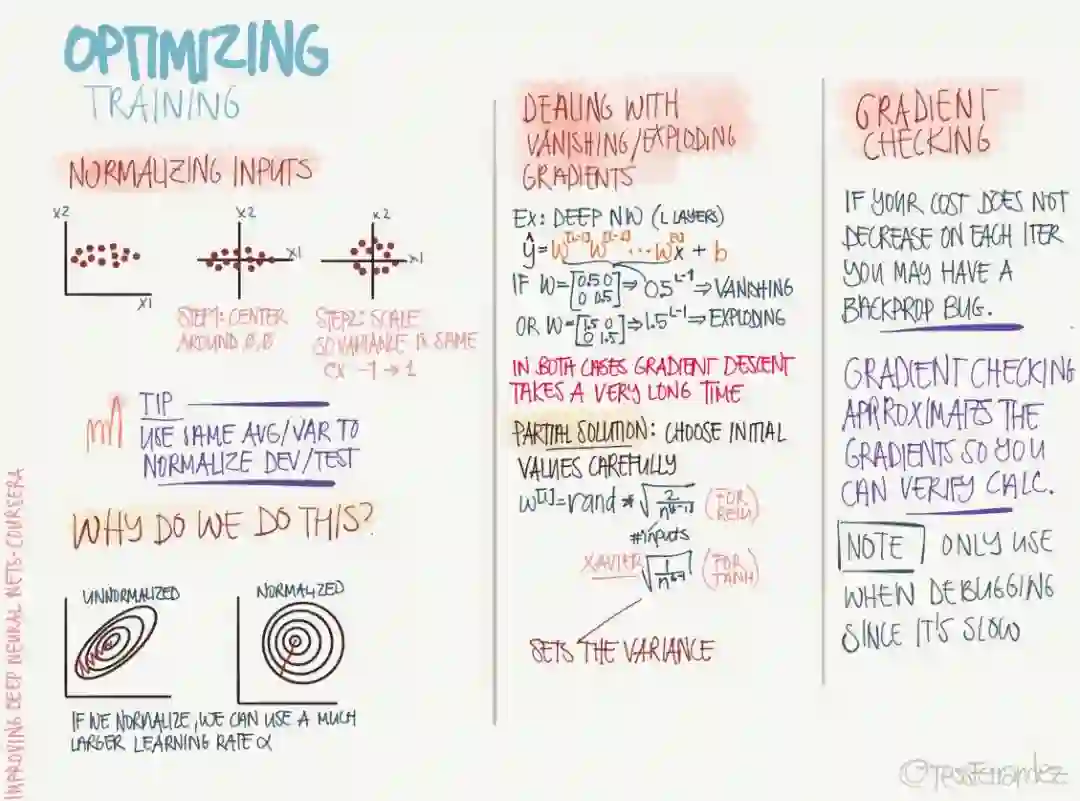 OPTIMIZING
TRAINING
NORMALIZING INPUTS
X2
X1
X2
X1
X2
X1
STEP1: CENTER
AROUND 0,0
STEP2: SCALE
SO VARIANCE IS SAME
EX -1 → 1
TIP
USE SAME AVG/VAR TO
NORMALIZE DEV/TEST
WHY DO WE DO THIS?
UNNORMALIZED
NORMALIZED
IF WE NORMALIZE, WE CAN USE A MUCH
LARGER LEARNING RATE α
IMPROVING DEEP NEURAL NETS - COURSERA
DEALING WITH
VANISHING/EXPLODING
GRADIENTS
EX: DEEP NW (L LAYERS)
ŷ = W[L-1] W[L-2] ... W[1] X + b
IF W = [0.5 0 0 0.5] ⇒ 0.5^L-1 ⇒ VANISHING
OR W = [1.5 0 0 1.5] ⇒ 1.5^L-1 ⇒ EXPLODING
IN BOTH CASES GRADIENT DESCENT
TAKES A VERY LONG TIME
PARTIAL SOLUTION: CHOOSE INITIAL
VALUES CAREFULLY
W[l] = rand * √2/n[l-1] (FOR RELU)
#inputs
XAVIER √1/n[l-1] (FOR TANH)
SETS THE VARIANCE
GRADIENT
CHECKING
IF YOUR COST DOES NOT
DECREASE ON EACH ITER
YOU MAY HAVE A
BACKPROP BUG.
GRADIENT CHECKING
APPROXIMATES THE
GRADIENTS SO YOU
CAN VERIFY CALC.
NOTE ONLY USE
WHEN DEBUGGING
SINCE IT'S SLOW
@TessFerrandez